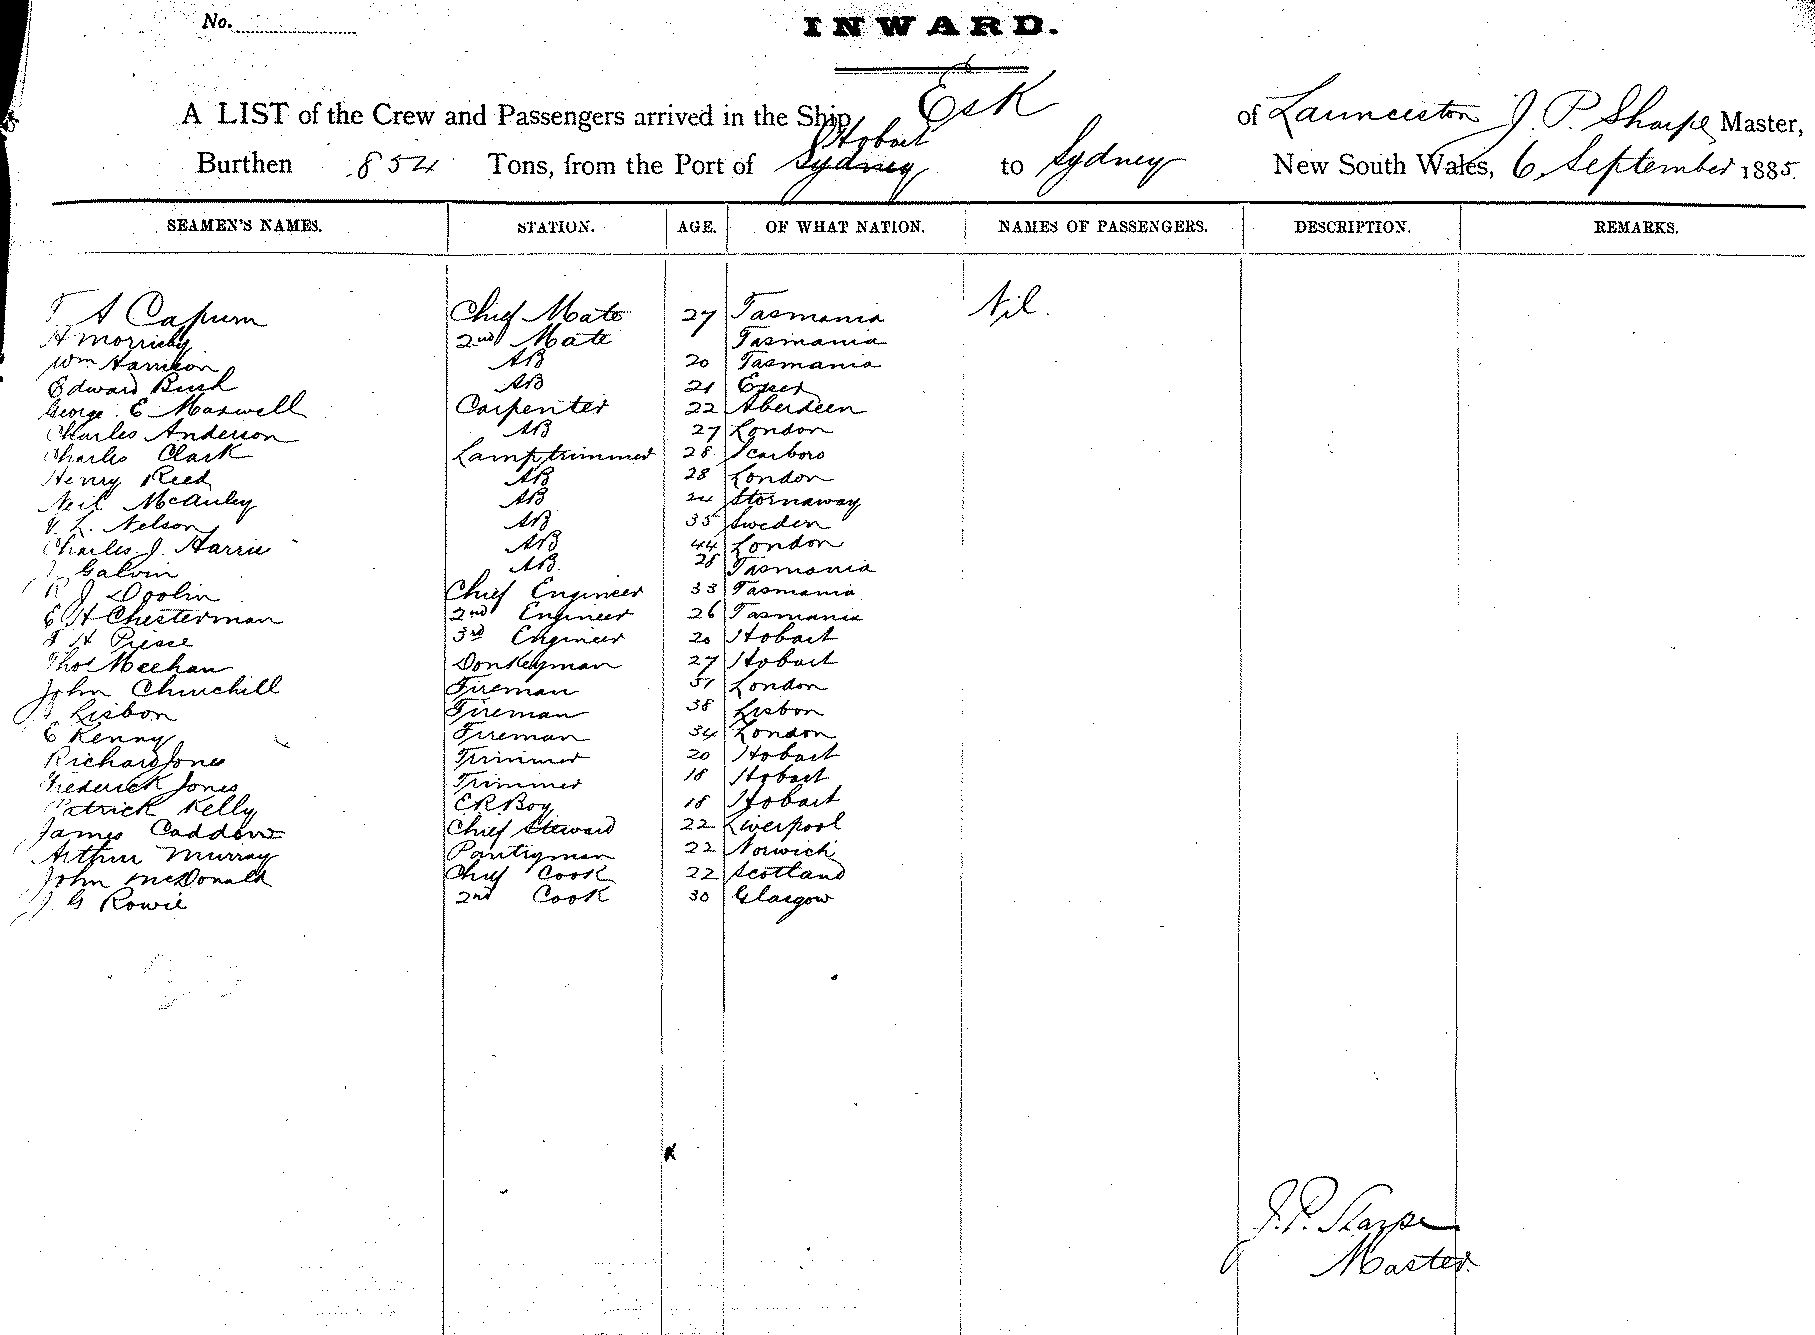 No.
INWARD.
A LIST of the Crew and Passengers arrived in the Ship Esk of Launceston J. P. Sharpe Master,
Hobart
Burthen 854 Tons, from the Port of Sydney to Sydney New South Wales, 6 September 1885.
SEAMEN'S NAMES. STATION. AGE. OF WHAT NATION. NAMES OF PASSENGERS. DESCRIPTION. REMARKS.
T A Capurn Chief Mate 27 Tasmania Nil.
A Morrisby 2nd Mate Tasmania
Wm Harrison AB 20 Tasmania
Edward Bush AB 21 Essex
George E Maxwell Carpenter 22 Aberdeen
Charles Anderson AB 27 London
Charles Clark Lamptrimmer 28 Scarboro
Henry Reed AB 28 London
Neil McAuley AB 24 Stornaway
L. Nelson AB 35 Sweden
Charles J. Harris AB 44 London
J Galvin AB 28 Tasmania
R J Doolin Chief Engineer 33 Tasmania
E H Chesterman 2nd Engineer 26 Tasmania
H Piesse 3rd Engineer 20 Hobart
Thos Meehan Donkeyman 27 Hobart
John Churchill Fireman 51 London
Lisbon Fireman 38 Lisbon
E Kenny Fireman 34 London
Richard Jones Trimmer 20 Hobart
Frederick Jones Trimmer 18 Hobart
Patrick Kelly ER Boy 18 Hobart
James Caddow Chief Steward 22 Liverpool
Arthur Murray Pantryman 22 Norwich
John McDonald Chief Cook 22 Scotland
J. G Rowie 2nd Cook 30 Glasgow
J. P. Sharpe
Master